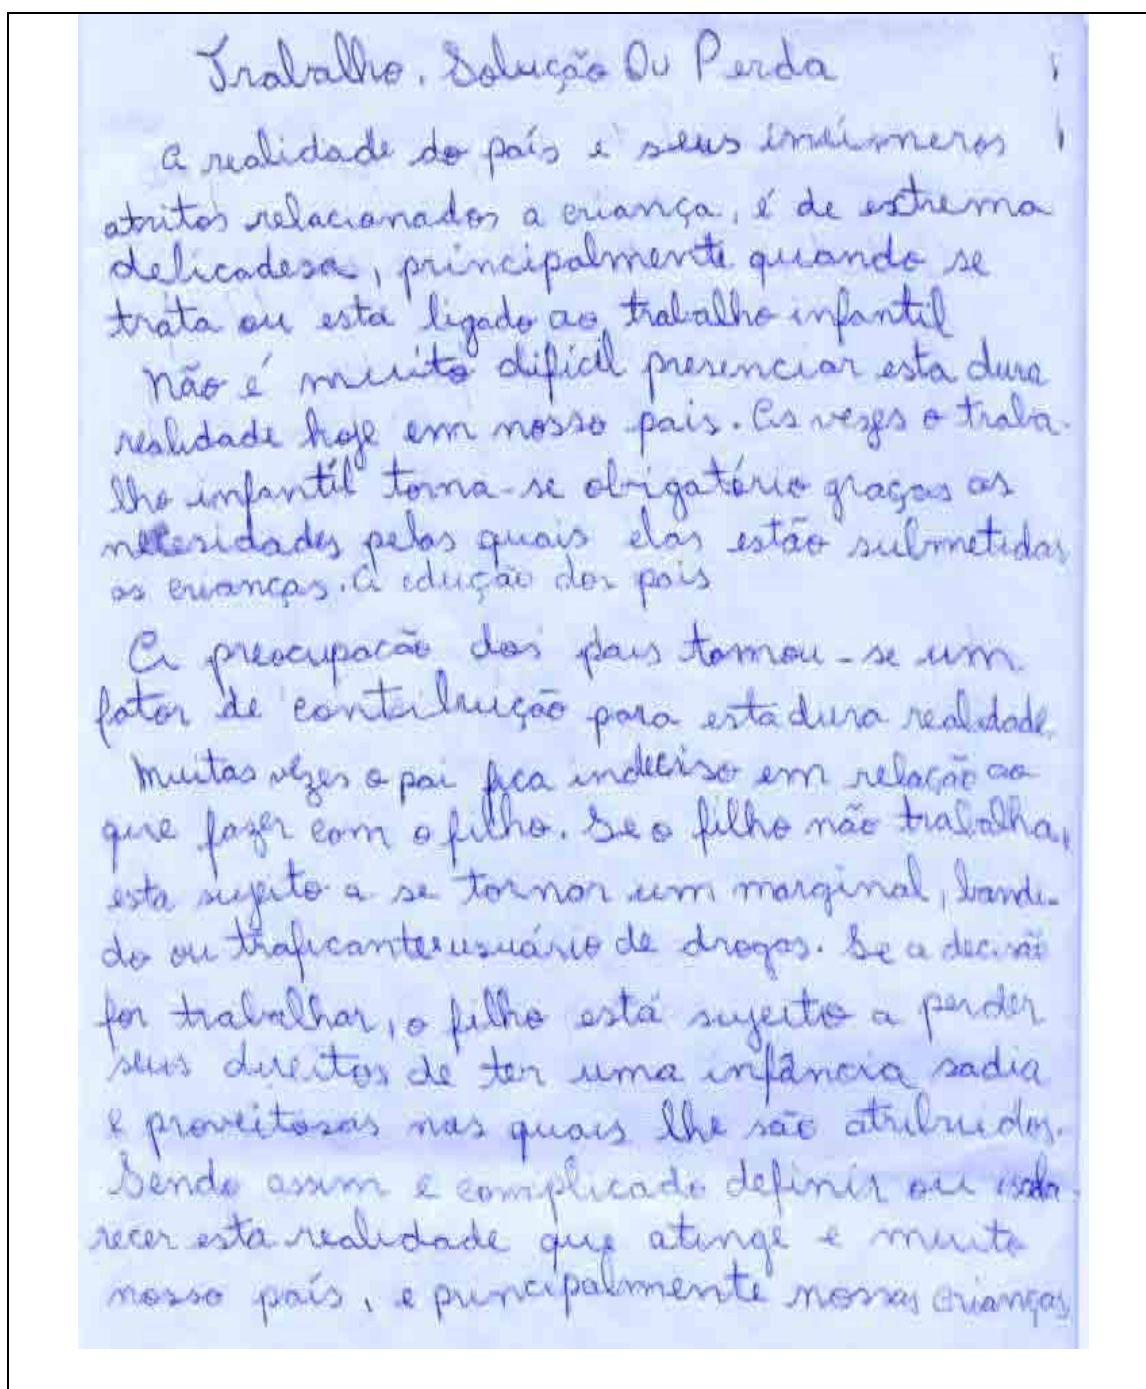 Trabalho. Solução Ou Perda
A realidade do país e seus inúmeros
atritos relacionados a criança, é de extrema
delicadesa, principalmente quando se
trata ou está ligado ao trabalho infantil
Não é muito difícil presenciar esta dura
realidade hoje em nosso país. As vezes o traba-
lho infantil torna-se obrigatório graças as
necesidades pelas quais elas estão submetidas
as crianças. A edução dos pais
A preocupacão dos pais tornou-se um
fator de contribuição para esta dura realidade.
Muitas vezes o pai fica indeciso em relação ao
que fazer com o filho. Se o filho não trabalha,
esta sujeito a se tornar um marginal, bandi-
do ou traficante usuário de drogas. Se a decisão
for trabalhar, o filho está sujeito a perder
seus direitos de ter uma infância sadia
e proveitosas nas quais lhe são atribuidos.
Sendo assim e complicado definir ou
recer esta realidade que atinge e muito
nosso país, e principalmente nossas crianças